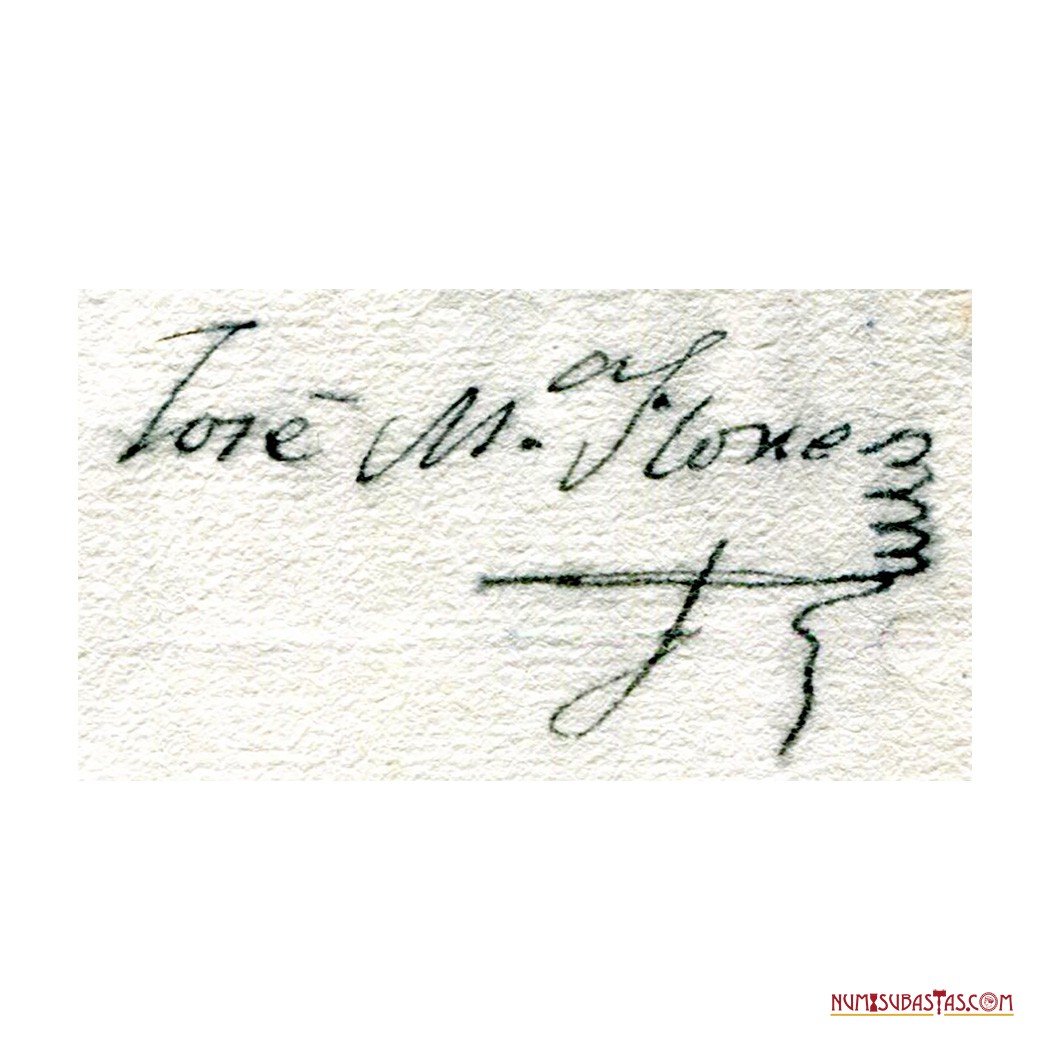 José M.ª Flores
NUMISUBASTAS.COM